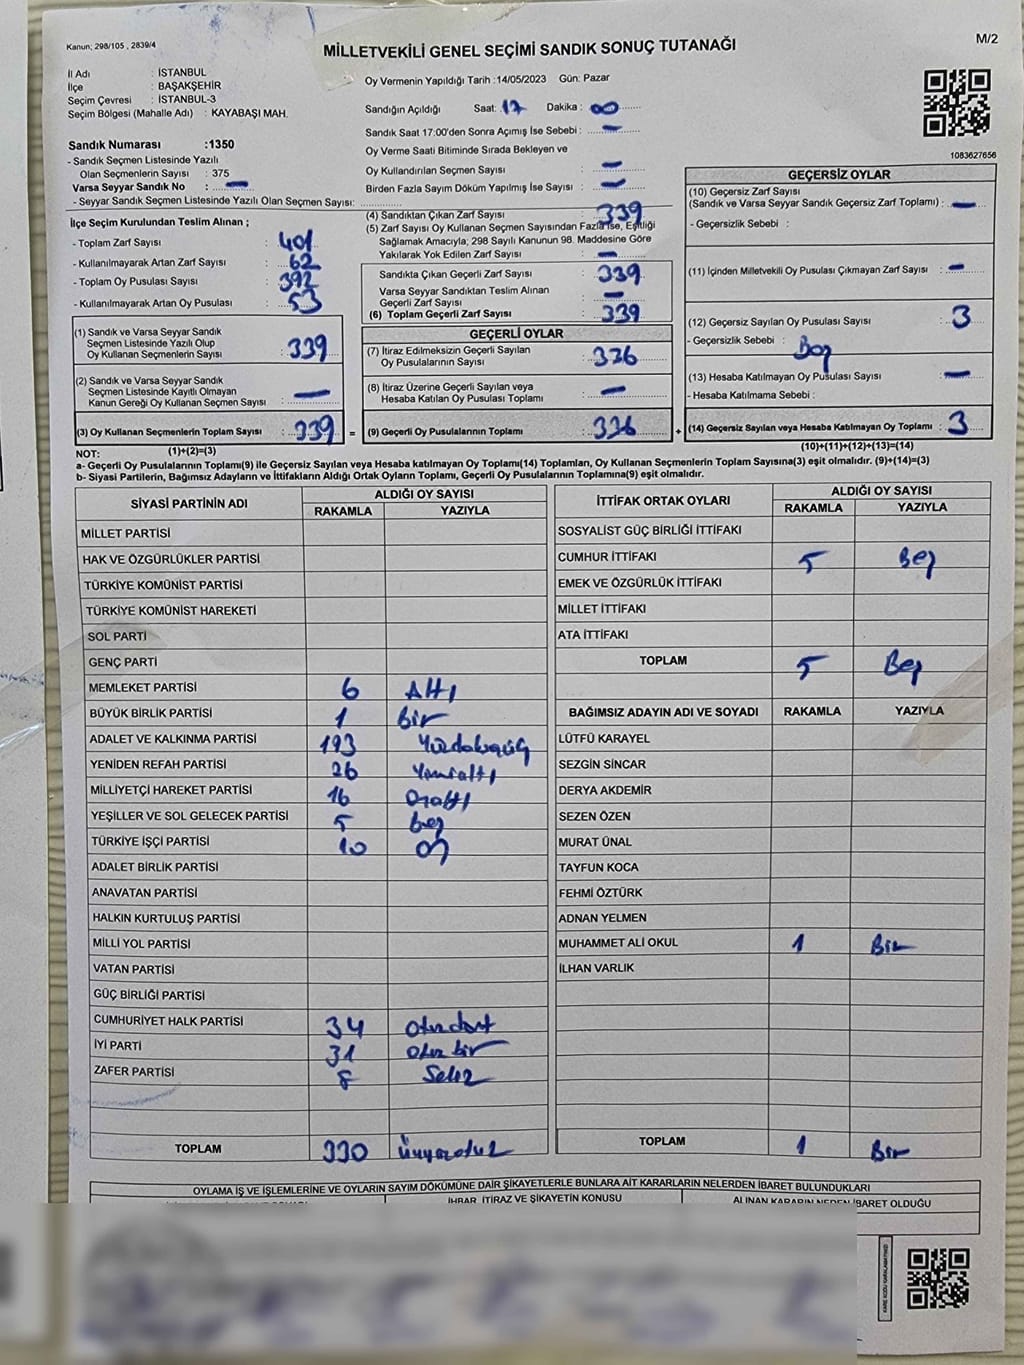 Kanun; 298/105 , 2839/4
MİLLETVEKİLİ GENEL SEÇİMİ SANDIK SONUÇ TUTANAĞI
M/2
İl Adı : İSTANBUL
İlçe : BAŞAKŞEHİR
Seçim Çevresi : İSTANBUL-3
Seçim Bölgesi (Mahalle Adı) : KAYABAŞI MAH.
Oy Vermenin Yapıldığı Tarih :14/05/2023 Gün: Pazar
Sandığın Açıldığı Saat: 17 Dakika : 00
Sandık Saat 17:00'den Sonra Açılmış İse Sebebi : —
Oy Verme Saati Bitiminde Sırada Bekleyen ve
Oy Kullandırılan Seçmen Sayısı : —
Birden Fazla Sayım Döküm Yapılmış İse Sayısı : —
1083627656
Sandık Numarası :1350
- Sandık Seçmen Listesinde Yazılı
Olan Seçmenlerin Sayısı : 375
Varsa Seyyar Sandık No : —
- Seyyar Sandık Seçmen Listesinde Yazılı Olan Seçmen Sayısı:
İlçe Seçim Kurulundan Teslim Alınan ;
- Toplam Zarf Sayısı : 401
- Kullanılmayarak Artan Zarf Sayısı : 62
- Toplam Oy Pusulası Sayısı : 392
- Kullanılmayarak Artan Oy Pusulası : 53
(1) Sandık ve Varsa Seyyar Sandık
Seçmen Listesinde Yazılı Olup
Oy Kullanan Seçmenlerin Sayısı : 339
(2) Sandık ve Varsa Seyyar Sandık
Seçmen Listesinde Kayıtlı Olmayan
Kanun Gereği Oy Kullanan Seçmen Sayısı : —
(3) Oy Kullanan Seçmenlerin Toplam Sayısı : 339 =
(1)+(2)=(3)
(4) Sandıktan Çıkan Zarf Sayısı : 339
(5) Zarf Sayısı Oy Kullanan Seçmen Sayısından Fazla İse, Eşitliği
Sağlamak Amacıyla; 298 Sayılı Kanunun 98. Maddesine Göre
Yakılarak Yok Edilen Zarf Sayısı : —
Sandıkta Çıkan Geçerli Zarf Sayısı : 339
Varsa Seyyar Sandıktan Teslim Alınan
Geçerli Zarf Sayısı : —
(6) Toplam Geçerli Zarf Sayısı : 339
GEÇERLİ OYLAR
(7) İtiraz Edilmeksizin Geçerli Sayılan
Oy Pusulalarının Sayısı : 336
(8) İtiraz Üzerine Geçerli Sayılan veya
Hesaba Katılan Oy Pusulası Toplamı : —
(9) Geçerli Oy Pusulalarının Toplamı : 336 +
GEÇERSİZ OYLAR
(10) Geçersiz Zarf Sayısı
(Sandık ve Varsa Seyyar Sandık Geçersiz Zarf Toplamı) : —
- Geçersizlik Sebebi :
(11) İçinden Milletvekili Oy Pusulası Çıkmayan Zarf Sayısı : —
(12) Geçersiz Sayılan Oy Pusulası Sayısı : 3
- Geçersizlik Sebebi : Boş
(13) Hesaba Katılmayan Oy Pusulası Sayısı : —
- Hesaba Katılmama Sebebi :
(14) Geçersiz Sayılan veya Hesaba Katılmayan Oy Toplamı : 3
(10)+(11)+(12)+(13)=(14)
NOT:
a- Geçerli Oy Pusulalarının Toplamı(9) ile Geçersiz Sayılan veya Hesaba katılmayan Oy Toplamı(14) Toplamları, Oy Kullanan Seçmenlerin Toplam Sayısına(3) eşit olmalıdır. (9)+(14)=(3)
b- Siyasi Partilerin, Bağımsız Adayların ve İttifakların Aldığı Ortak Oyların Toplamı, Geçerli Oy Pusulalarının Toplamına(9) eşit olmalıdır.
SİYASİ PARTİNİN ADI ALDIĞI OY SAYISI
RAKAMLA YAZIYLA
MİLLET PARTİSİ
HAK VE ÖZGÜRLÜKLER PARTİSİ
TÜRKİYE KOMÜNİST PARTİSİ
TÜRKİYE KOMÜNİST HAREKETİ
SOL PARTİ
GENÇ PARTİ
MEMLEKET PARTİSİ 6 Altı
BÜYÜK BİRLİK PARTİSİ 1 Bir
ADALET VE KALKINMA PARTİSİ 193 Yüzdoksanüç
YENİDEN REFAH PARTİSİ 26 Yirmialtı
MİLLİYETÇİ HAREKET PARTİSİ 16 Onaltı
YEŞİLLER VE SOL GELECEK PARTİSİ 5 beş
TÜRKİYE İŞÇİ PARTİSİ 10 On
ADALET BİRLİK PARTİSİ
ANAVATAN PARTİSİ
HALKIN KURTULUŞ PARTİSİ
MİLLİ YOL PARTİSİ
VATAN PARTİSİ
GÜÇ BİRLİĞİ PARTİSİ
CUMHURİYET HALK PARTİSİ 34 Otuzdört
İYİ PARTİ 31 Otuz bir
ZAFER PARTİSİ 8 Sekiz
TOPLAM 330 Üçyüzotuz
İTTİFAK ORTAK OYLARI ALDIĞI OY SAYISI
RAKAMLA YAZIYLA
SOSYALİST GÜÇ BİRLİĞİ İTTİFAKI
CUMHUR İTTİFAKI 5 Beş
EMEK VE ÖZGÜRLÜK İTTİFAKI
MİLLET İTTİFAKI
ATA İTTİFAKI
TOPLAM 5 Beş
BAĞIMSIZ ADAYIN ADI VE SOYADI RAKAMLA YAZIYLA
LÜTFÜ KARAYEL
SEZGİN SİNCAR
DERYA AKDEMİR
SEZEN ÖZEN
MURAT ÜNAL
TAYFUN KOCA
FEHMİ ÖZTÜRK
ADNAN YELMEN
MUHAMMET ALİ OKUL 1 Bir
İLHAN VARLIK
TOPLAM 1 Bir
OYLAMA İŞ VE İŞLEMLERİNE VE OYLARIN SAYIM DÖKÜMÜNE DAİR ŞİKAYETLERLE BUNLARA AİT KARARLARIN NELERDEN İBARET BULUNDUKLARI
İHBAR, İTİRAZ VE ŞİKAYETİN KONUSU ALINAN KARARIN NEDEN İBARET OLDUĞU